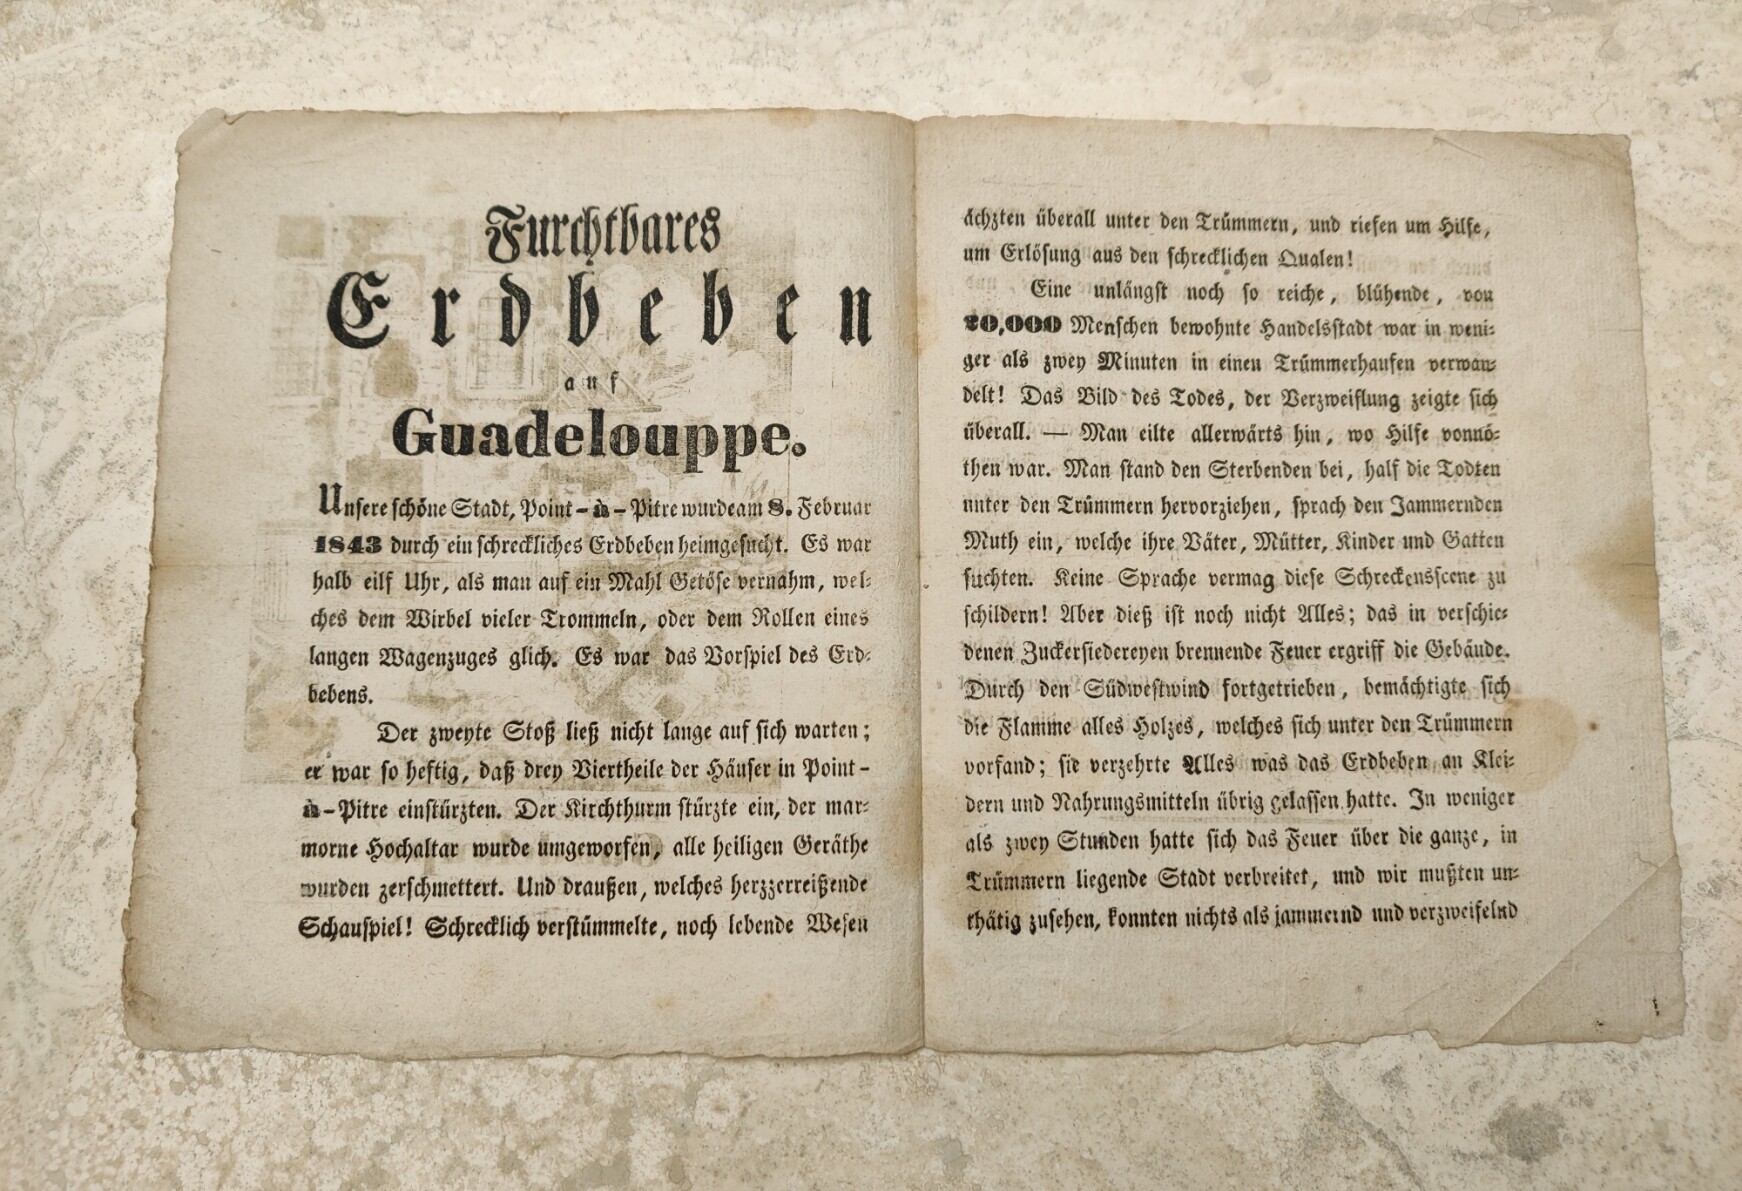 Furchtbares
Erdbeben
auf
Guadelouppe.
Unsere schöne Stadt, Point-à-Pitre wurde am 8. Februar
1843 durch ein schreckliches Erdbeben heimgesucht. Es war
halb eilf Uhr, als man auf ein Mahl Getöse vernahm, wel-
ches dem Wirbel vieler Trommeln, oder dem Rollen eines
langen Wagenzuges glich. Es war das Vorspiel des Erd-
bebens.
Der zweyte Stoß ließ nicht lange auf sich warten;
er war so heftig, daß drey Viertheile der Häuser in Point-
à-Pitre einstürzten. Der Kirchthurm stürzte ein, der mar-
morne Hochaltar wurde umgeworfen, alle heiligen Geräthe
wurden zerschmettert. Und draußen, welches herzzerreißende
Schauspiel! Schrecklich verstümmelte, noch lebende Wesen
ächzten überall unter den Trümmern, und riefen um Hilfe,
um Erlösung aus den schrecklichen Qualen!
Eine unlängst noch so reiche, blühende, von
20,000 Menschen bewohnte Handelsstadt war in weni-
ger als zwey Minuten in einen Trümmerhaufen verwan-
delt! Das Bild des Todes, der Verzweiflung zeigte sich
überall. — Man eilte allerwärts hin, wo Hilfe vonnö-
then war. Man stand den Sterbenden bei, half die Todten
unter den Trümmern hervorziehen, sprach den Jammernden
Muth ein, welche ihre Väter, Mütter, Kinder und Gatten
suchten. Keine Sprache vermag diese Schreckensscene zu
schildern! Aber dieß ist noch nicht Alles; das in verschie-
denen Zuckersiedereyen brennende Feuer ergriff die Gebäude.
Durch den Südwestwind fortgetrieben, bemächtigte sich
die Flamme alles Holzes, welches sich unter den Trümmern
vorfand; sie verzehrte Alles was das Erdbeben an Klei-
dern und Nahrungsmitteln übrig gelassen hatte. In weniger
als zwey Stunden hatte sich das Feuer über die ganze, in
Trümmern liegende Stadt verbreitet, und wir mußten un-
thätig zusehen, konnten nichts als jammernd und verzweifelnd